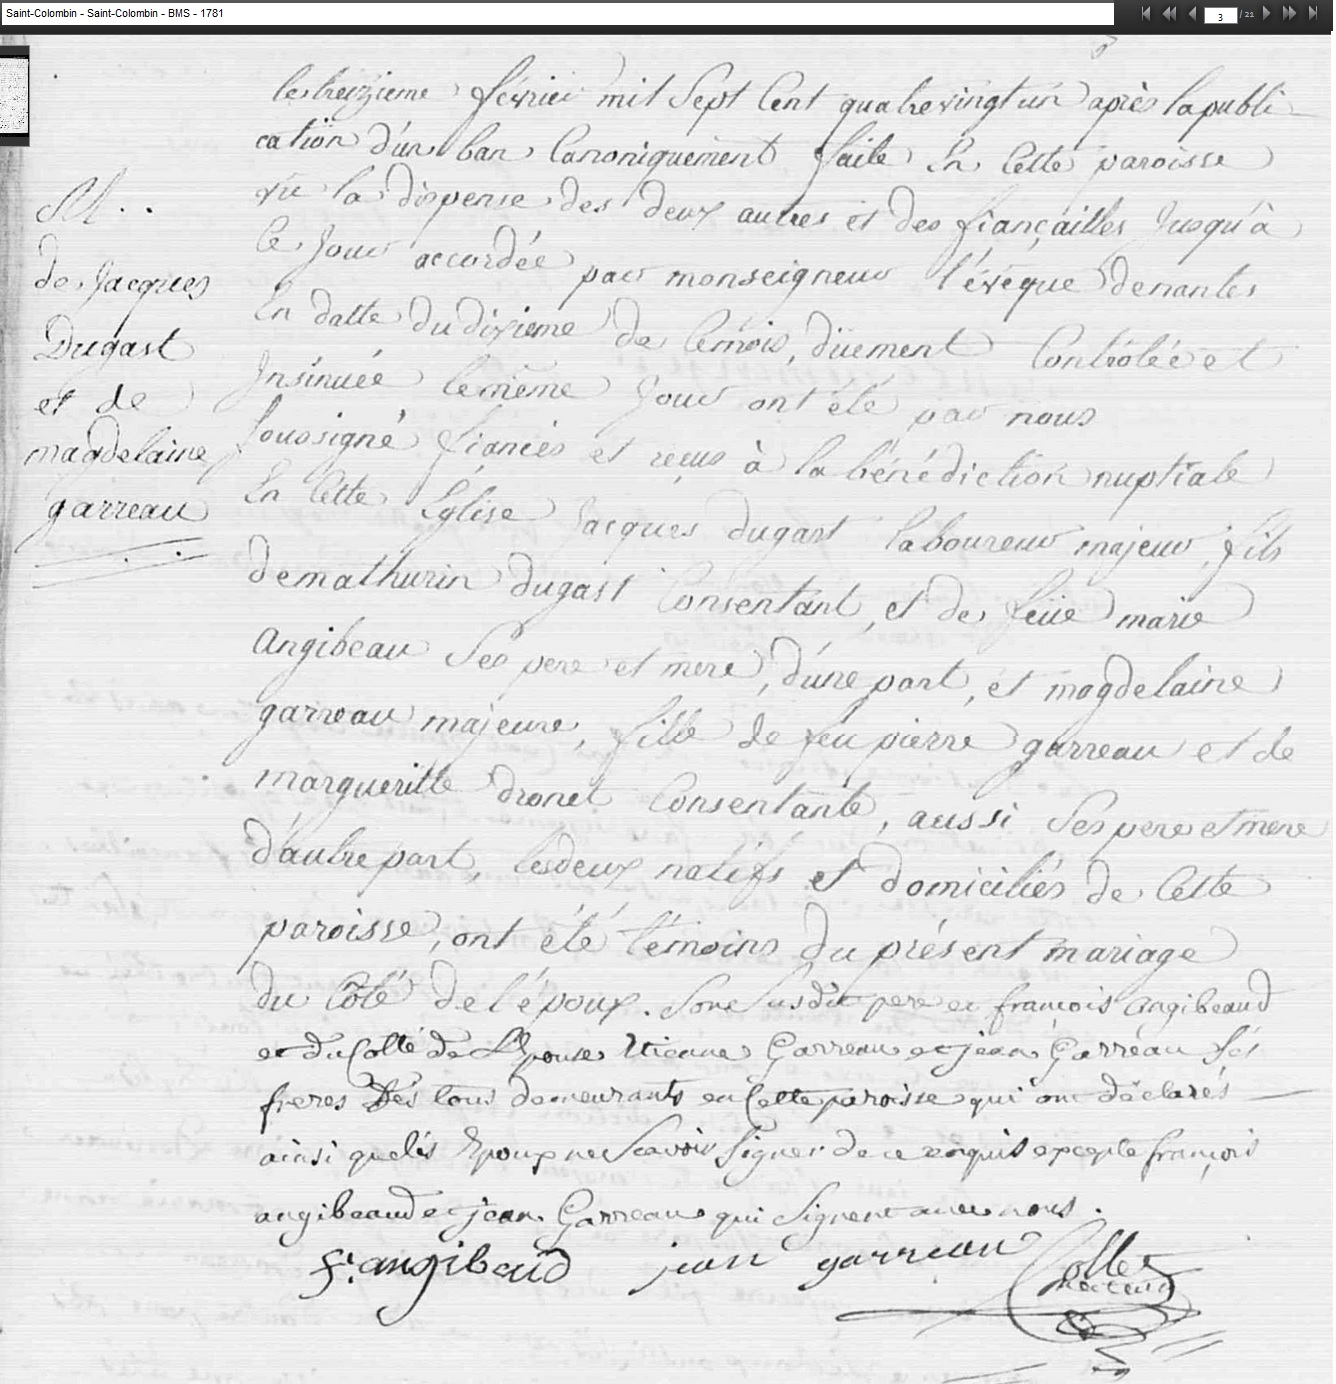 Saint-Colombin - Saint-Colombin - BMS - 1781
3 / 21
3
le treizieme février mil Sept Cent quatrevingt un après la publi-
cation d'un ban Canoniquement faite En Cette paroisse
vu la dispense des deux autres et des fiançailles Jusqu'à
Ce Jour accordée par monseigneur l'évêque denantes
En datte du dixieme de Cemois, düement Contrôlée et
Insinuée lemême Jour ont été par nous
Soussigné fiancés et reçus à la bénédiction nuptiale
En Cette Eglise Jacques dugast laboureur majeur, fils
demathurin dugast Consentant, et de feüe marie
Angibeau Ses pere et mere, d'une part, et magdelaine
garreau majeure, fille de feu pierre garreau et de
margueritte dronet Consentante, aussi Ses pere et mere
d'autre part, lesdeux natifs et domiciliés de Cette
paroisse, ont été témoins du présent mariage
du Côté de l'époux. Sont susdit pere et françois Angibeaud
et du Cotté de L'Epouse Etienne Garreau et jean Garreau sés
freres tous demeurants en Cette paroisse qui ont déclarés
ainsi que lés Epoux ne Scavoir Signer de ce enquis excepte françois
angibeaud et jean Garreau qui Signent avec nous.
f. angibaud jean garreau Collet
Recteur
M..
de Jacques
Dugast
et de
magdelaine
garreau